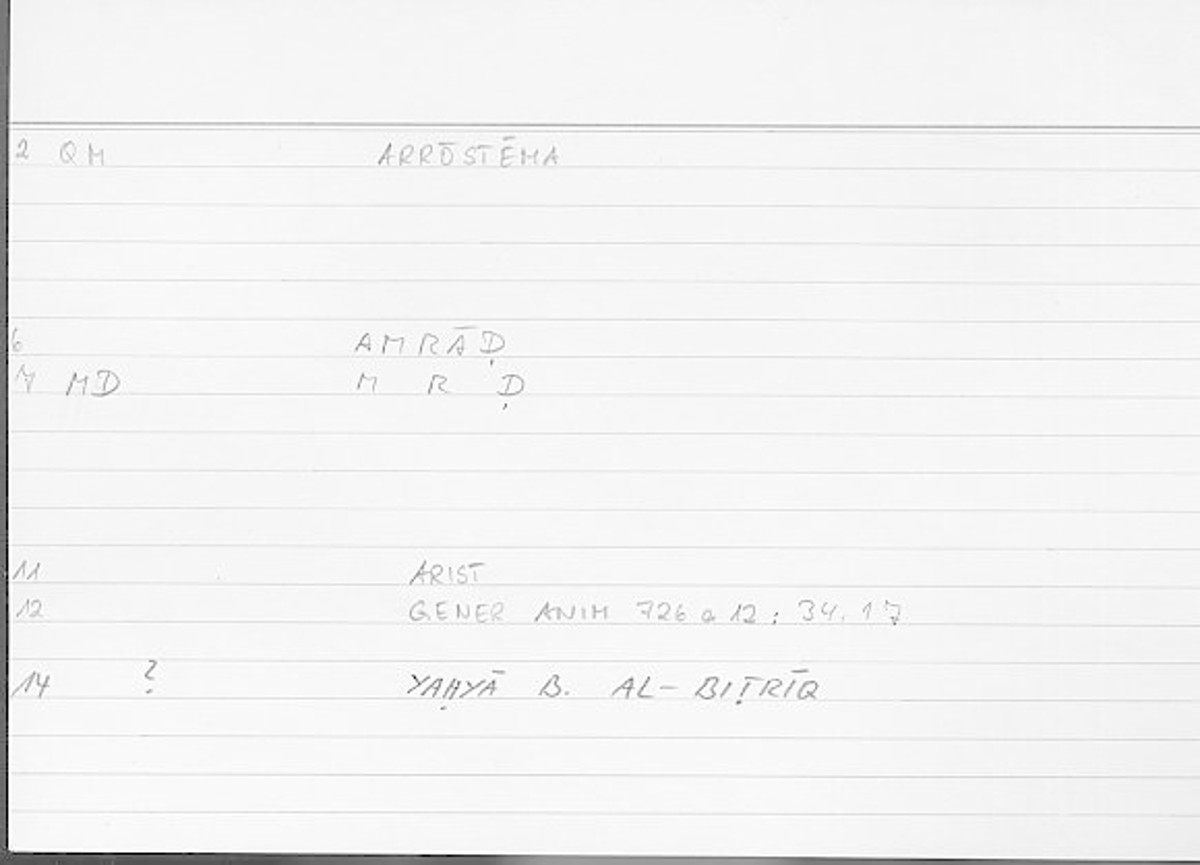 2 QM ARRŌSTĒMA
6 AMRĀḌ
7 MD M R Ḍ
11 ARIST
12 GENER ANIM 726 a 12 : 34.17
14 ? YAḤYĀ B. AL-BIṬRĪQ